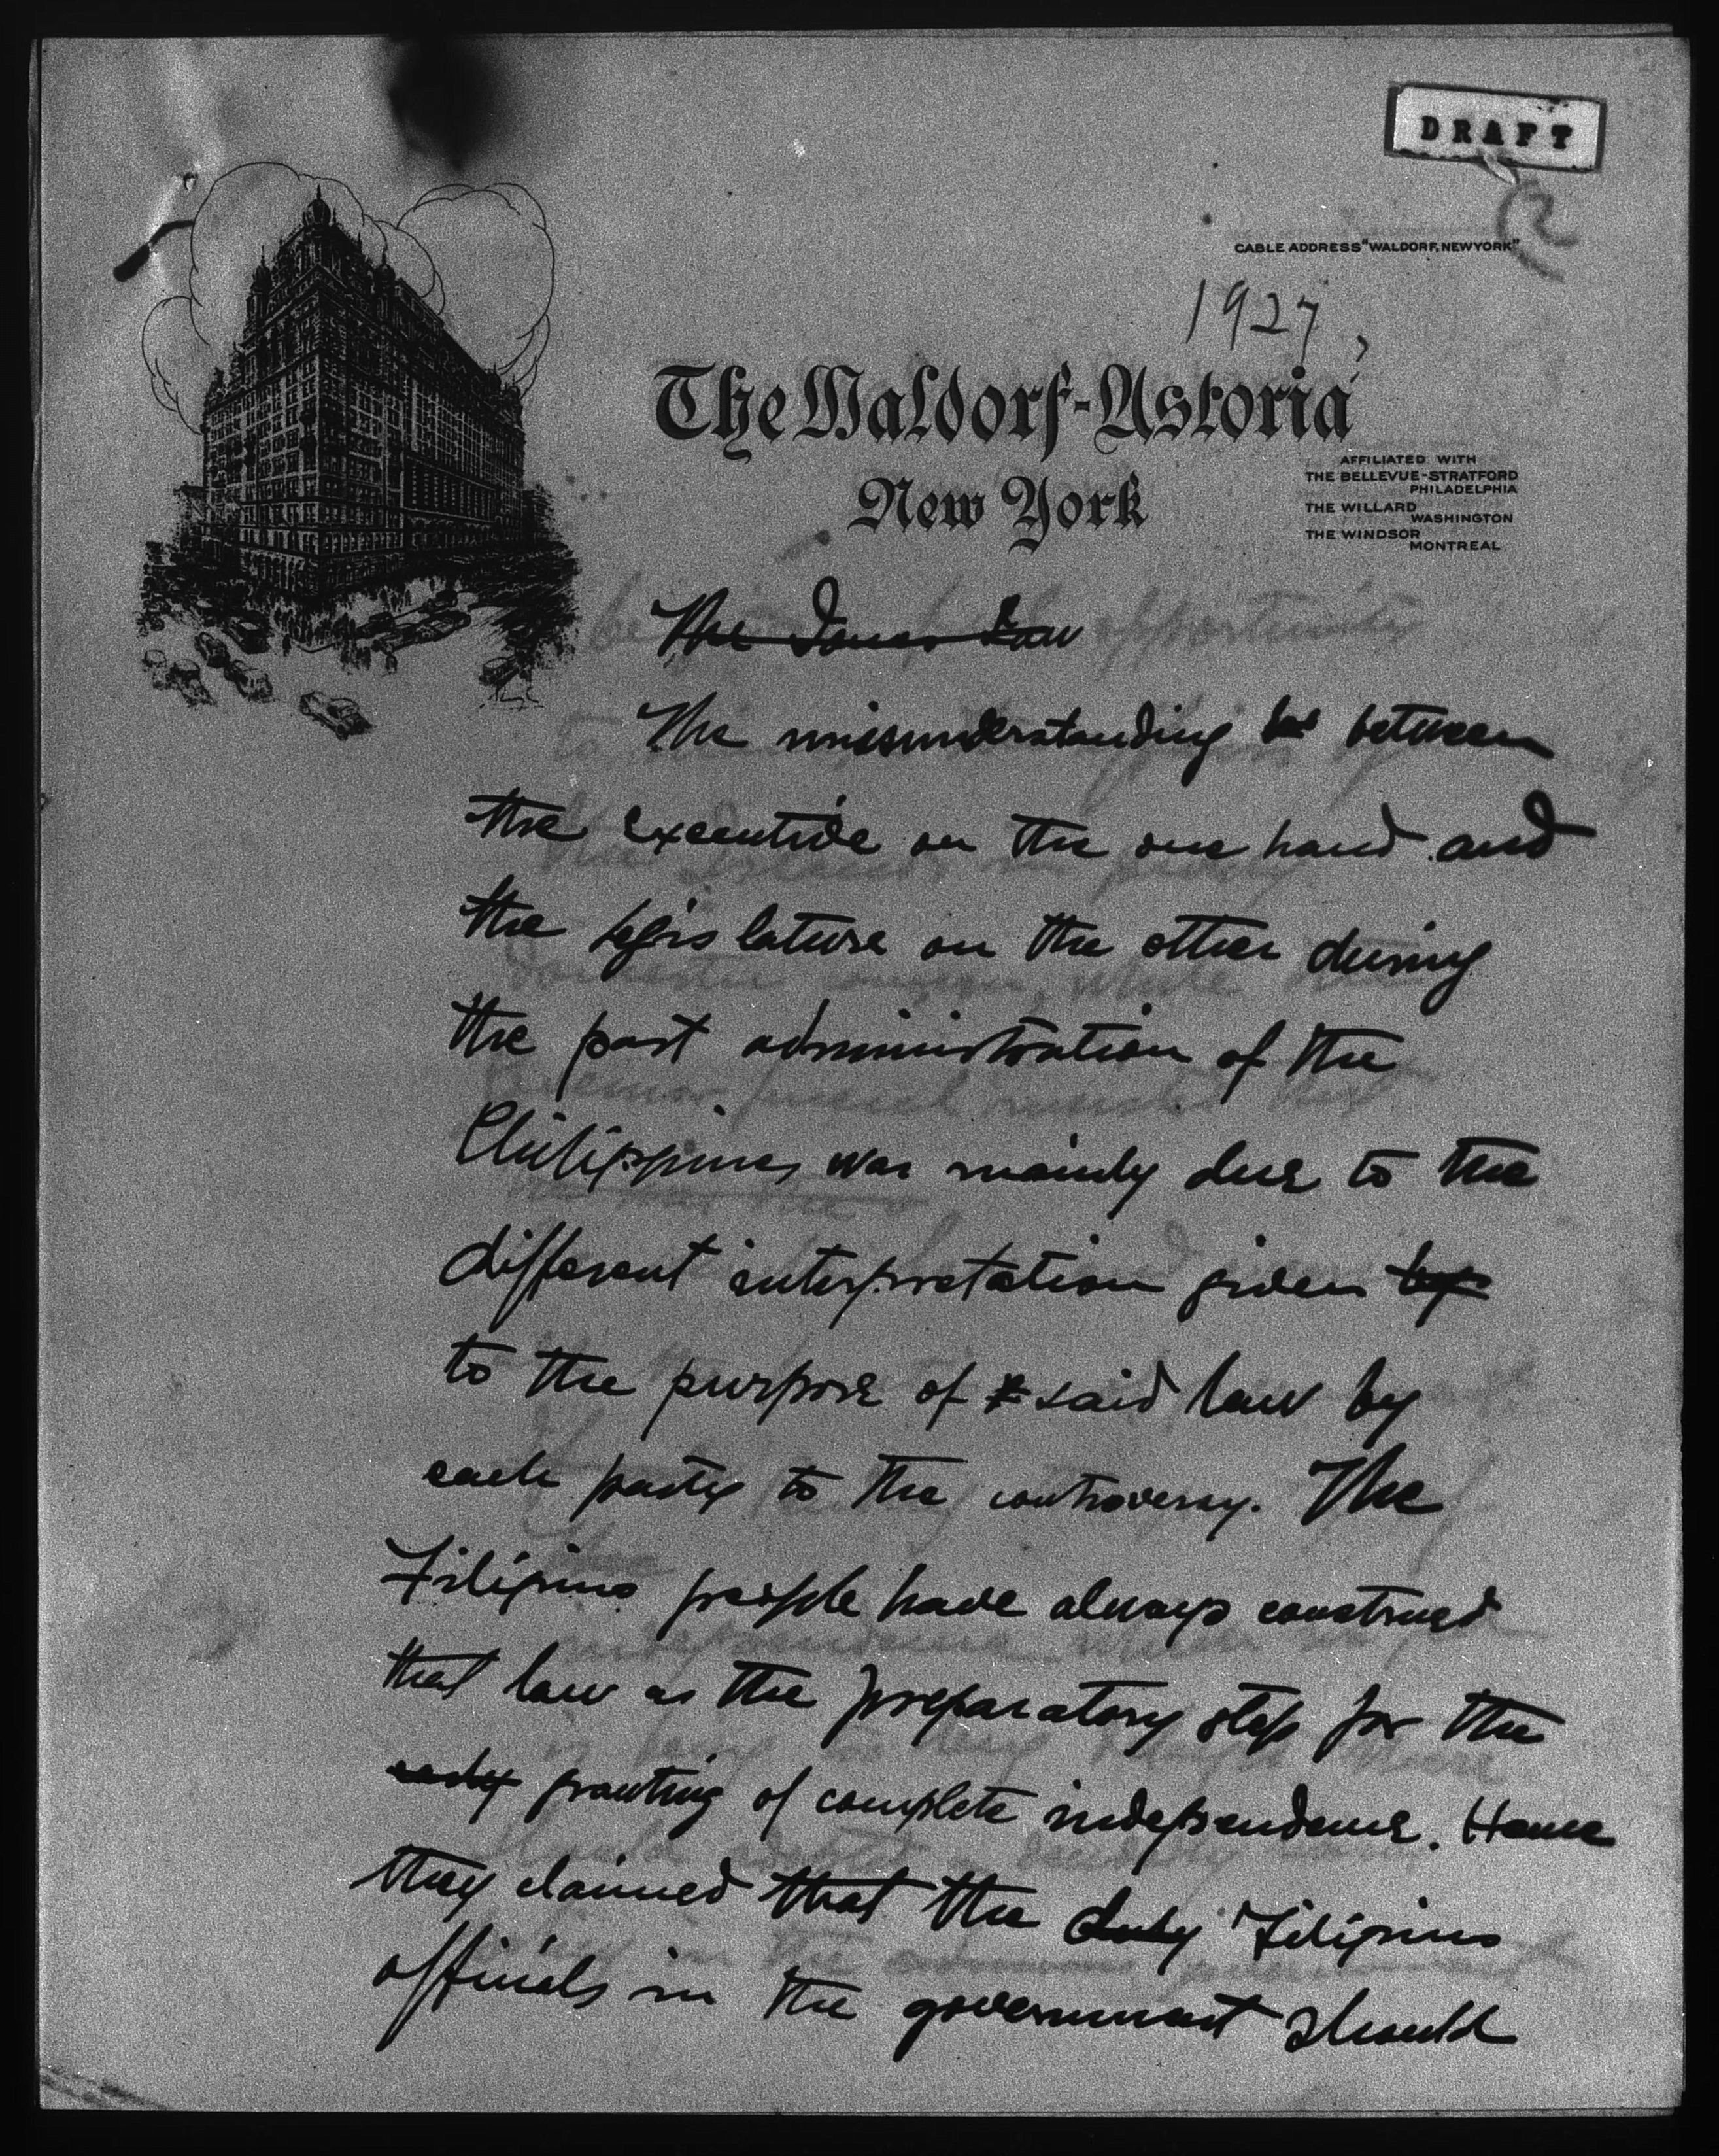 DRAFT
2
CABLE ADDRESS "WALDORF, NEW YORK"
1927,
The Waldorf-Astoria
New York
AFFILIATED WITH
THE BELLEVUE-STRATFORD
PHILADELPHIA
THE WILLARD
WASHINGTON
THE WINDSOR
MONTREAL
The Jones Law
The misunderstanding bet between
the executive on the one hand and
the legislature on the other during
the past administration of the
Philippines was mainly due to the
different interpretation given by
to the purpose of said law by
each party to the controversy. The
Filipino people have always construed
that law as the preparatory step for the
early granting of complete independence. Hence
they claimed that the duly Filipino
officials in the government should